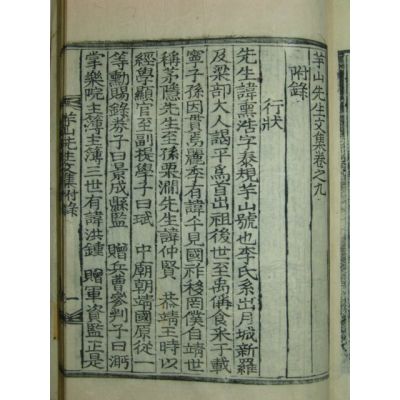 芋山先生文集卷之九
附錄
行狀
先生諱熏浩字泰規芋山號也李氏系出月城新羅
及梁部大人謁平爲首出祖後世至禹偁食采于載
寧子孫因貫焉麗李有諱午見國祚移罔僕自靖世
稱茅隱先生至孫栗澗先生諱仲賢 恭靖王時以
經學顯官至副提學子曰珷 中廟朝靖國原從一
等勳賜錄券子曰景成縣監 贈兵曹參判子曰
掌樂院主簿主簿三世有諱洪鍾 贈軍資監正是
芋山先生文集附錄 一